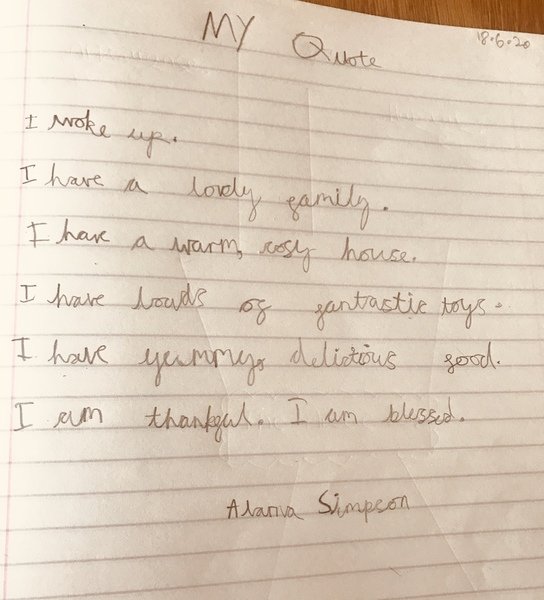 MY Quote
18.6.20
I woke up.
I have a lovely family.
I have a warm, cosy house.
I have louds of fantastic toys.
I have yummy, delictious food.
I am thankful. I am blessed.
Alania Simpson